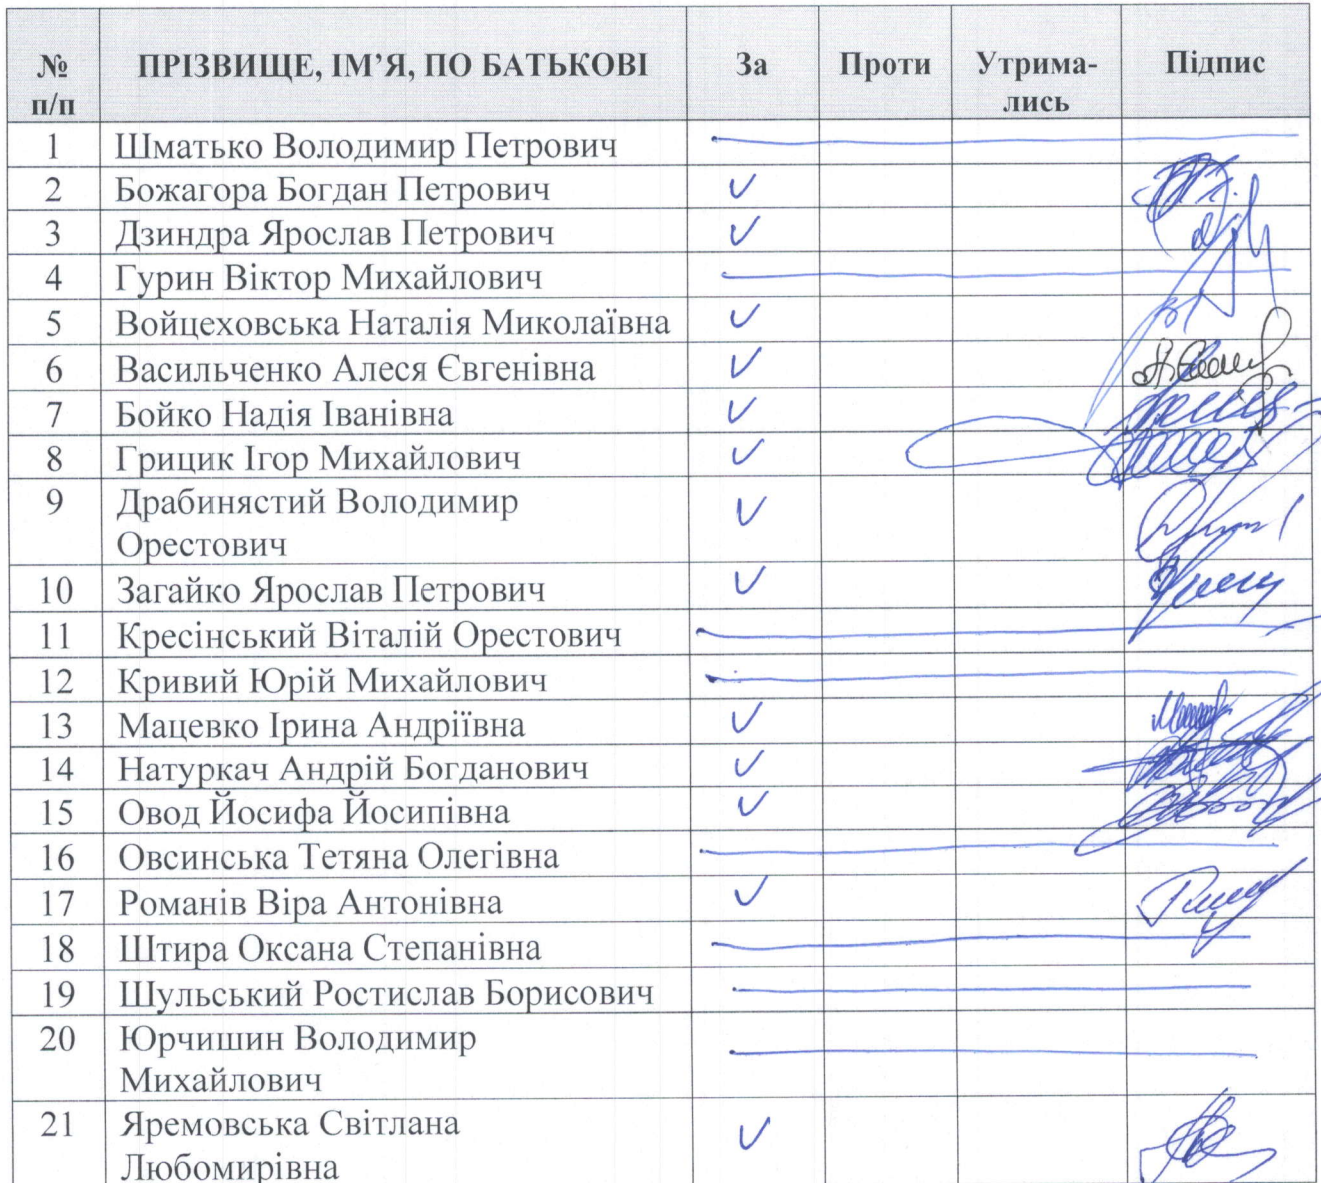 № п/п ПРІЗВИЩЕ, ІМ’Я, ПО БАТЬКОВІ За Проти Утрима-лись Підпис
1 Шматько Володимир Петрович
2 Божагора Богдан Петрович ✓
3 Дзиндра Ярослав Петрович ✓
4 Гурин Віктор Михайлович
5 Войцеховська Наталія Миколаївна ✓
6 Васильченко Алеся Євгенівна ✓
7 Бойко Надія Іванівна ✓
8 Грицик Ігор Михайлович ✓
9 Драбинястий Володимир ✓
Орестович
10 Загайко Ярослав Петрович ✓
11 Кресінський Віталій Орестович
12 Кривий Юрій Михайлович
13 Мацевко Ірина Андріївна ✓
14 Натуркач Андрій Богданович ✓
15 Овод Йосифа Йосипівна ✓
16 Овсинська Тетяна Олегівна
17 Романів Віра Антонівна ✓
18 Штира Оксана Степанівна
19 Шульський Ростислав Борисович
20 Юрчишин Володимир
Михайлович
21 Яремовська Світлана ✓
Любомирівна